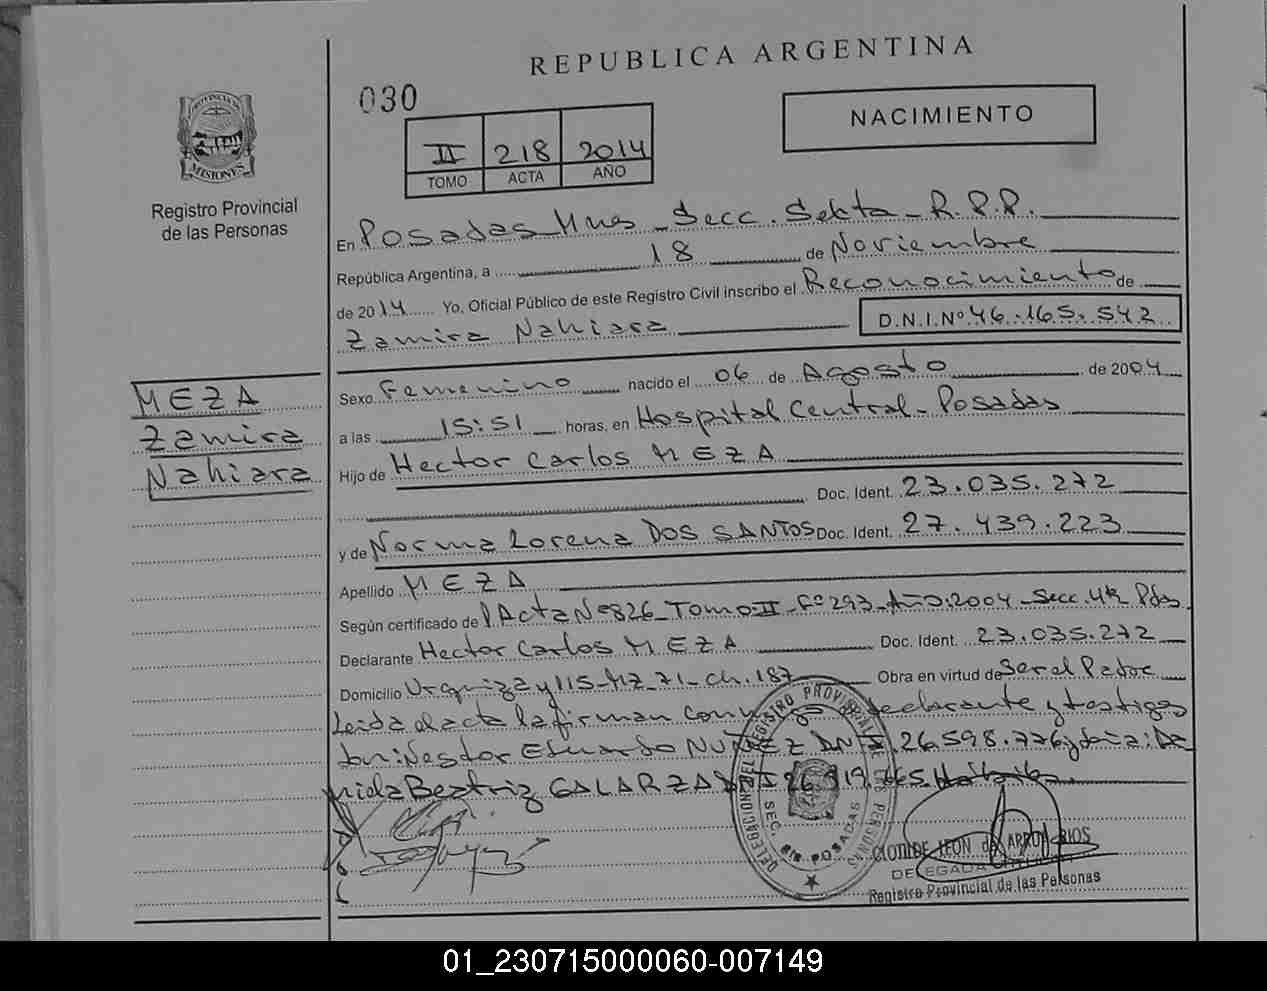 REPUBLICA ARGENTINA
030
NACIMIENTO
II 218 2014
TOMO ACTA AÑO
PROVINCIA DE
MISIONES
Registro Provincial
de las Personas
En Posadas Mnes Secc. Sexta - R.P.P.
República Argentina, a 18 de Noviembre
de 2014 Yo, Oficial Público de este Registro Civil inscribo el Reconocimiento de
Zamira Nahiara D.N.I. Nº 46.165.542
MEZA
Zamira
Nahiara
Sexo Femenino nacido el 06 de Agosto de 2004
a las 15:51 horas, en Hospital Central - Posadas
Hijo de Hector Carlos MEZA
Doc. Ident. 23.035.272
y de Norma Lorena DOS SANTOS Doc. Ident. 27.439.223
Apellido MEZA
Según certificado de Acta Nº 826 - Tomo: II - Fº 293 - Año: 2004 - Secc. 4ta Pdas
Declarante Hector Carlos MEZA Doc. Ident. 23.035.272
Domicilio Urquiza y 115 - Mz 71 - Ch. 187 Obra en virtud de Ser el Padre
Leida el acta la firman declarante y testigos
Nestor Eduardo NUÑEZ DNI 26.598.776
Beatriz GALARZA
DELEGACION DEL REGISTRO PROVINCIAL DE LAS PERSONAS
SEC. 6ta POSADAS
CLOTILDE LEON de ARROYO RIOS
DELEGADA
Registro Provincial de las Personas
01_230715000060-007149